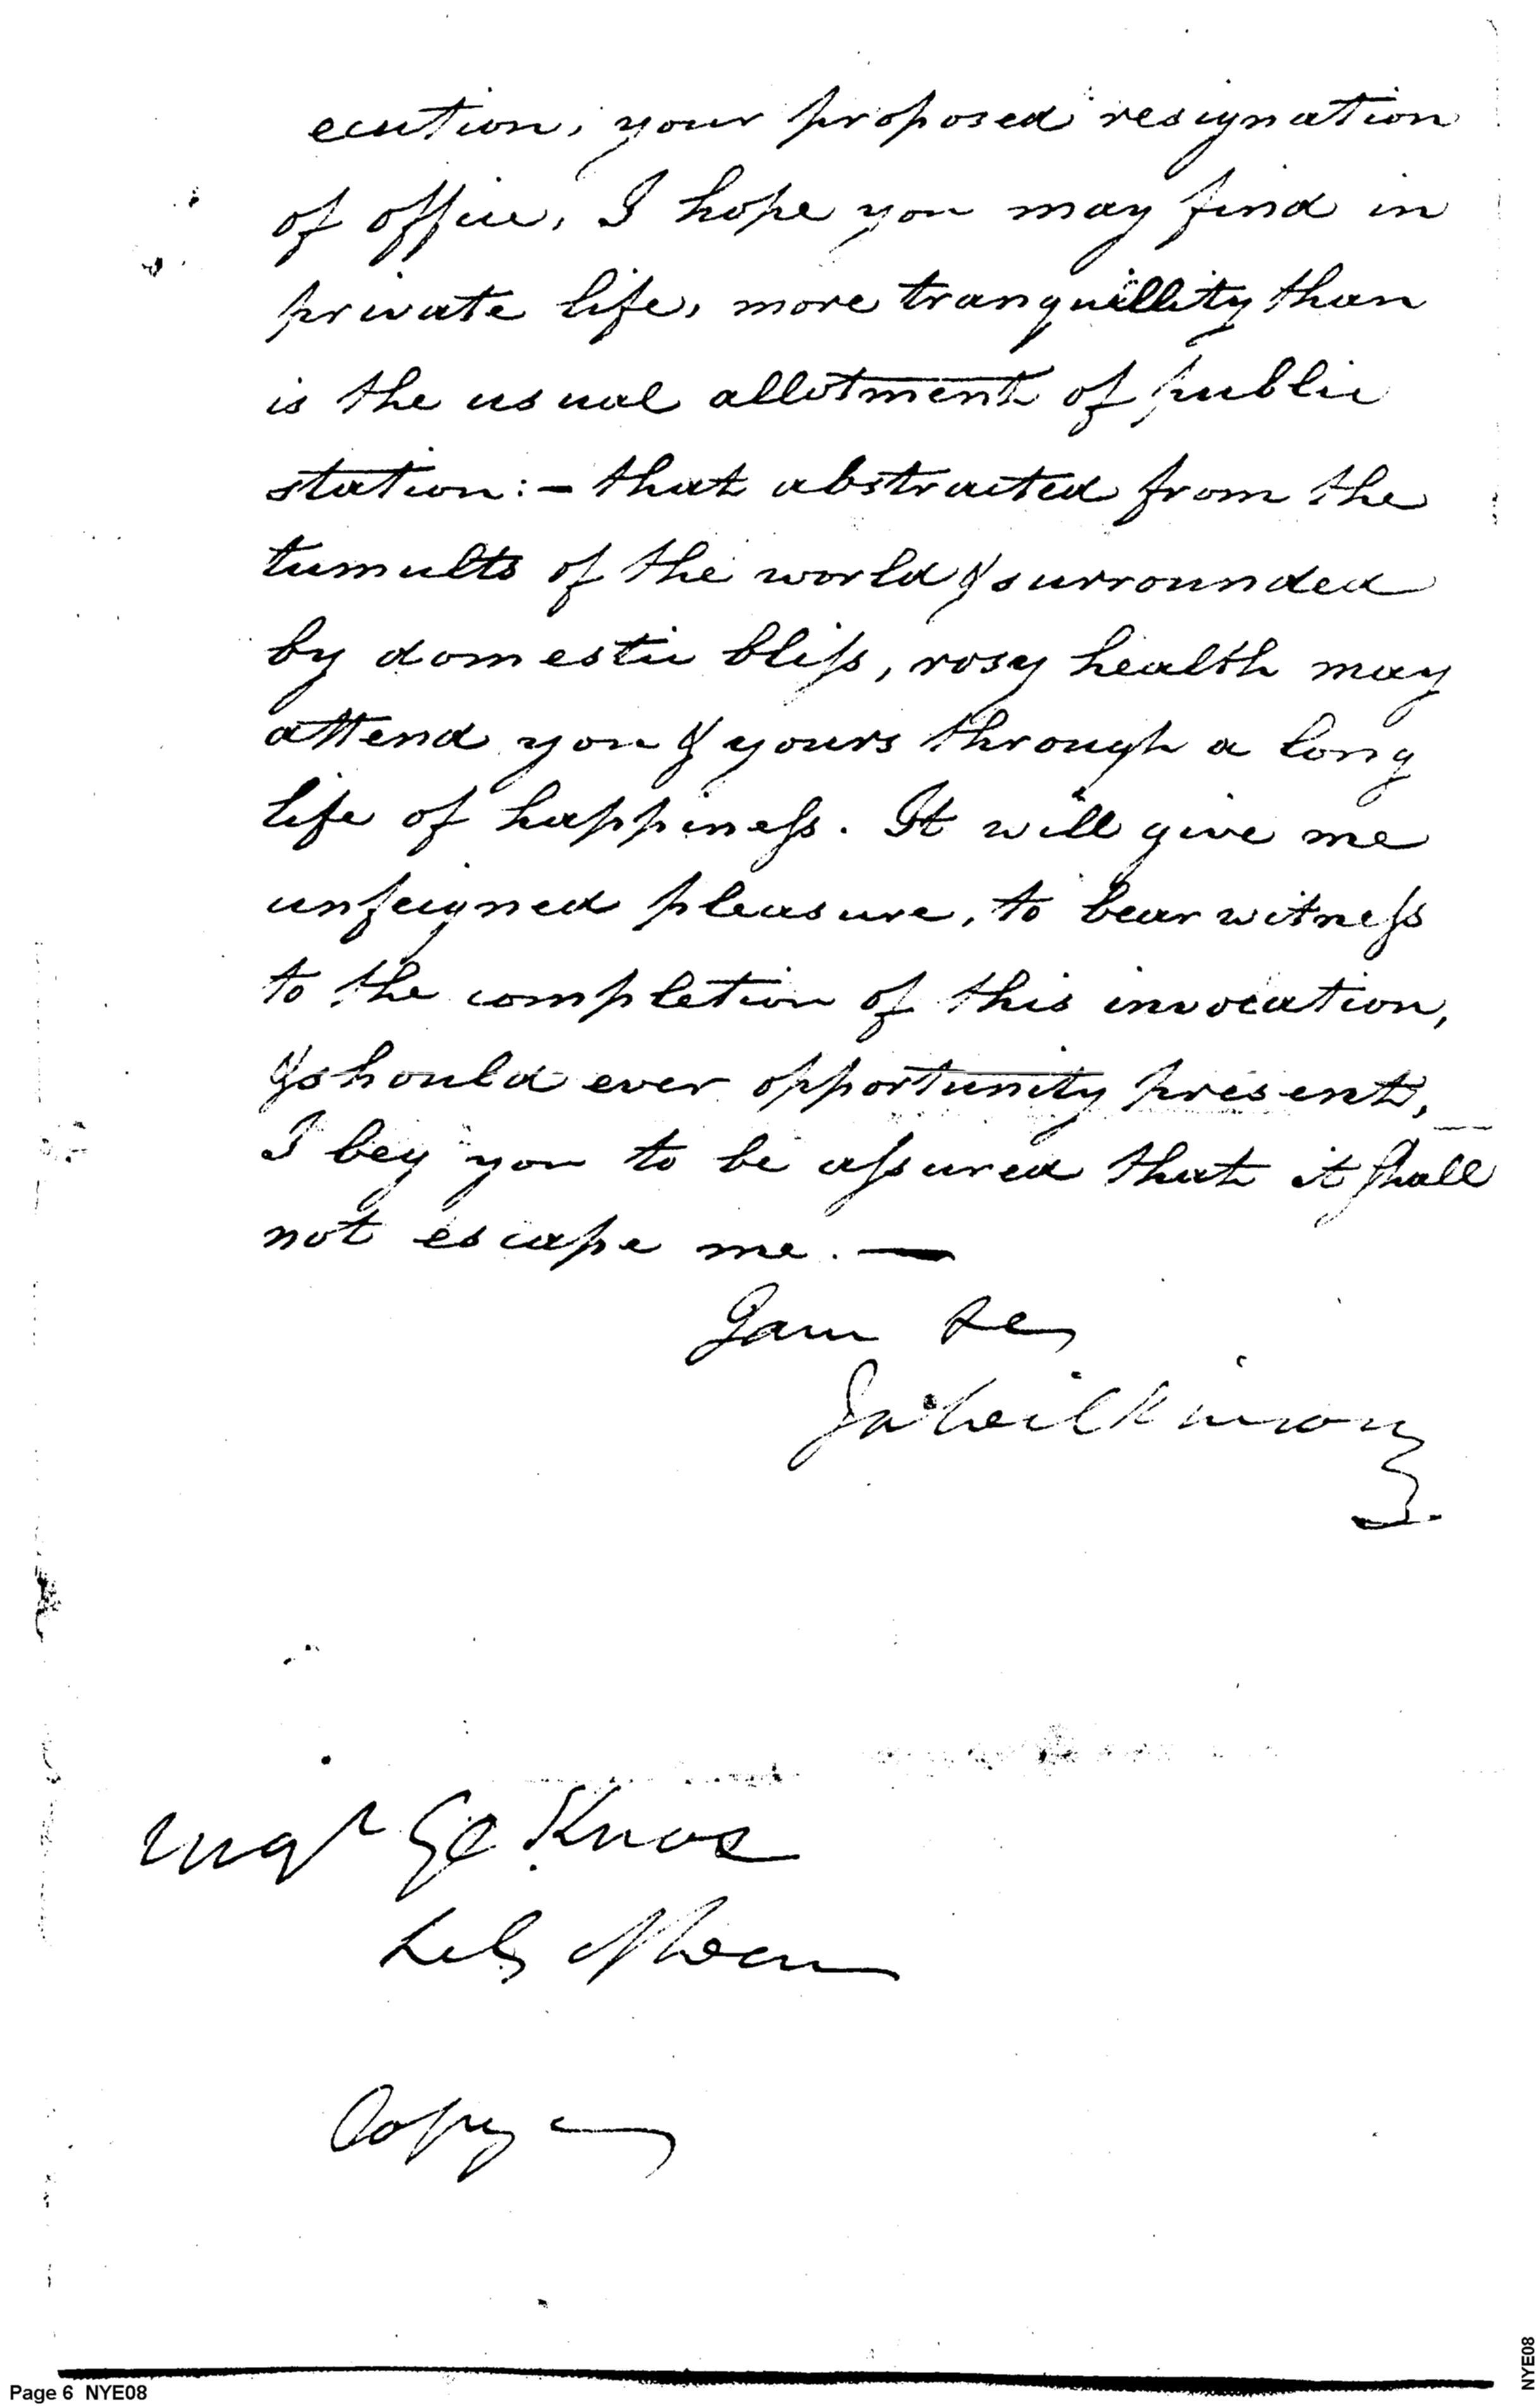 ecution, your proposed resignation
of office, I hope you may find in
private life, more tranquillity than
is the usual allotment of public
station:— that abstracted from the
tumults of the world & surrounded
by domestic bliſs, rosy health may
attend you & yours through a long
life of happineſs. It will give me
unfeigned pleasure, to bear witneſs
to the completion of this invocation,
& should ever opportunity present,
I beg you to be aſsured that it ſhall
not escape me. —
I am &c
Ja Wilkinson
Majr Gl Knox
Copy
Page 6 NYE08
NYE08